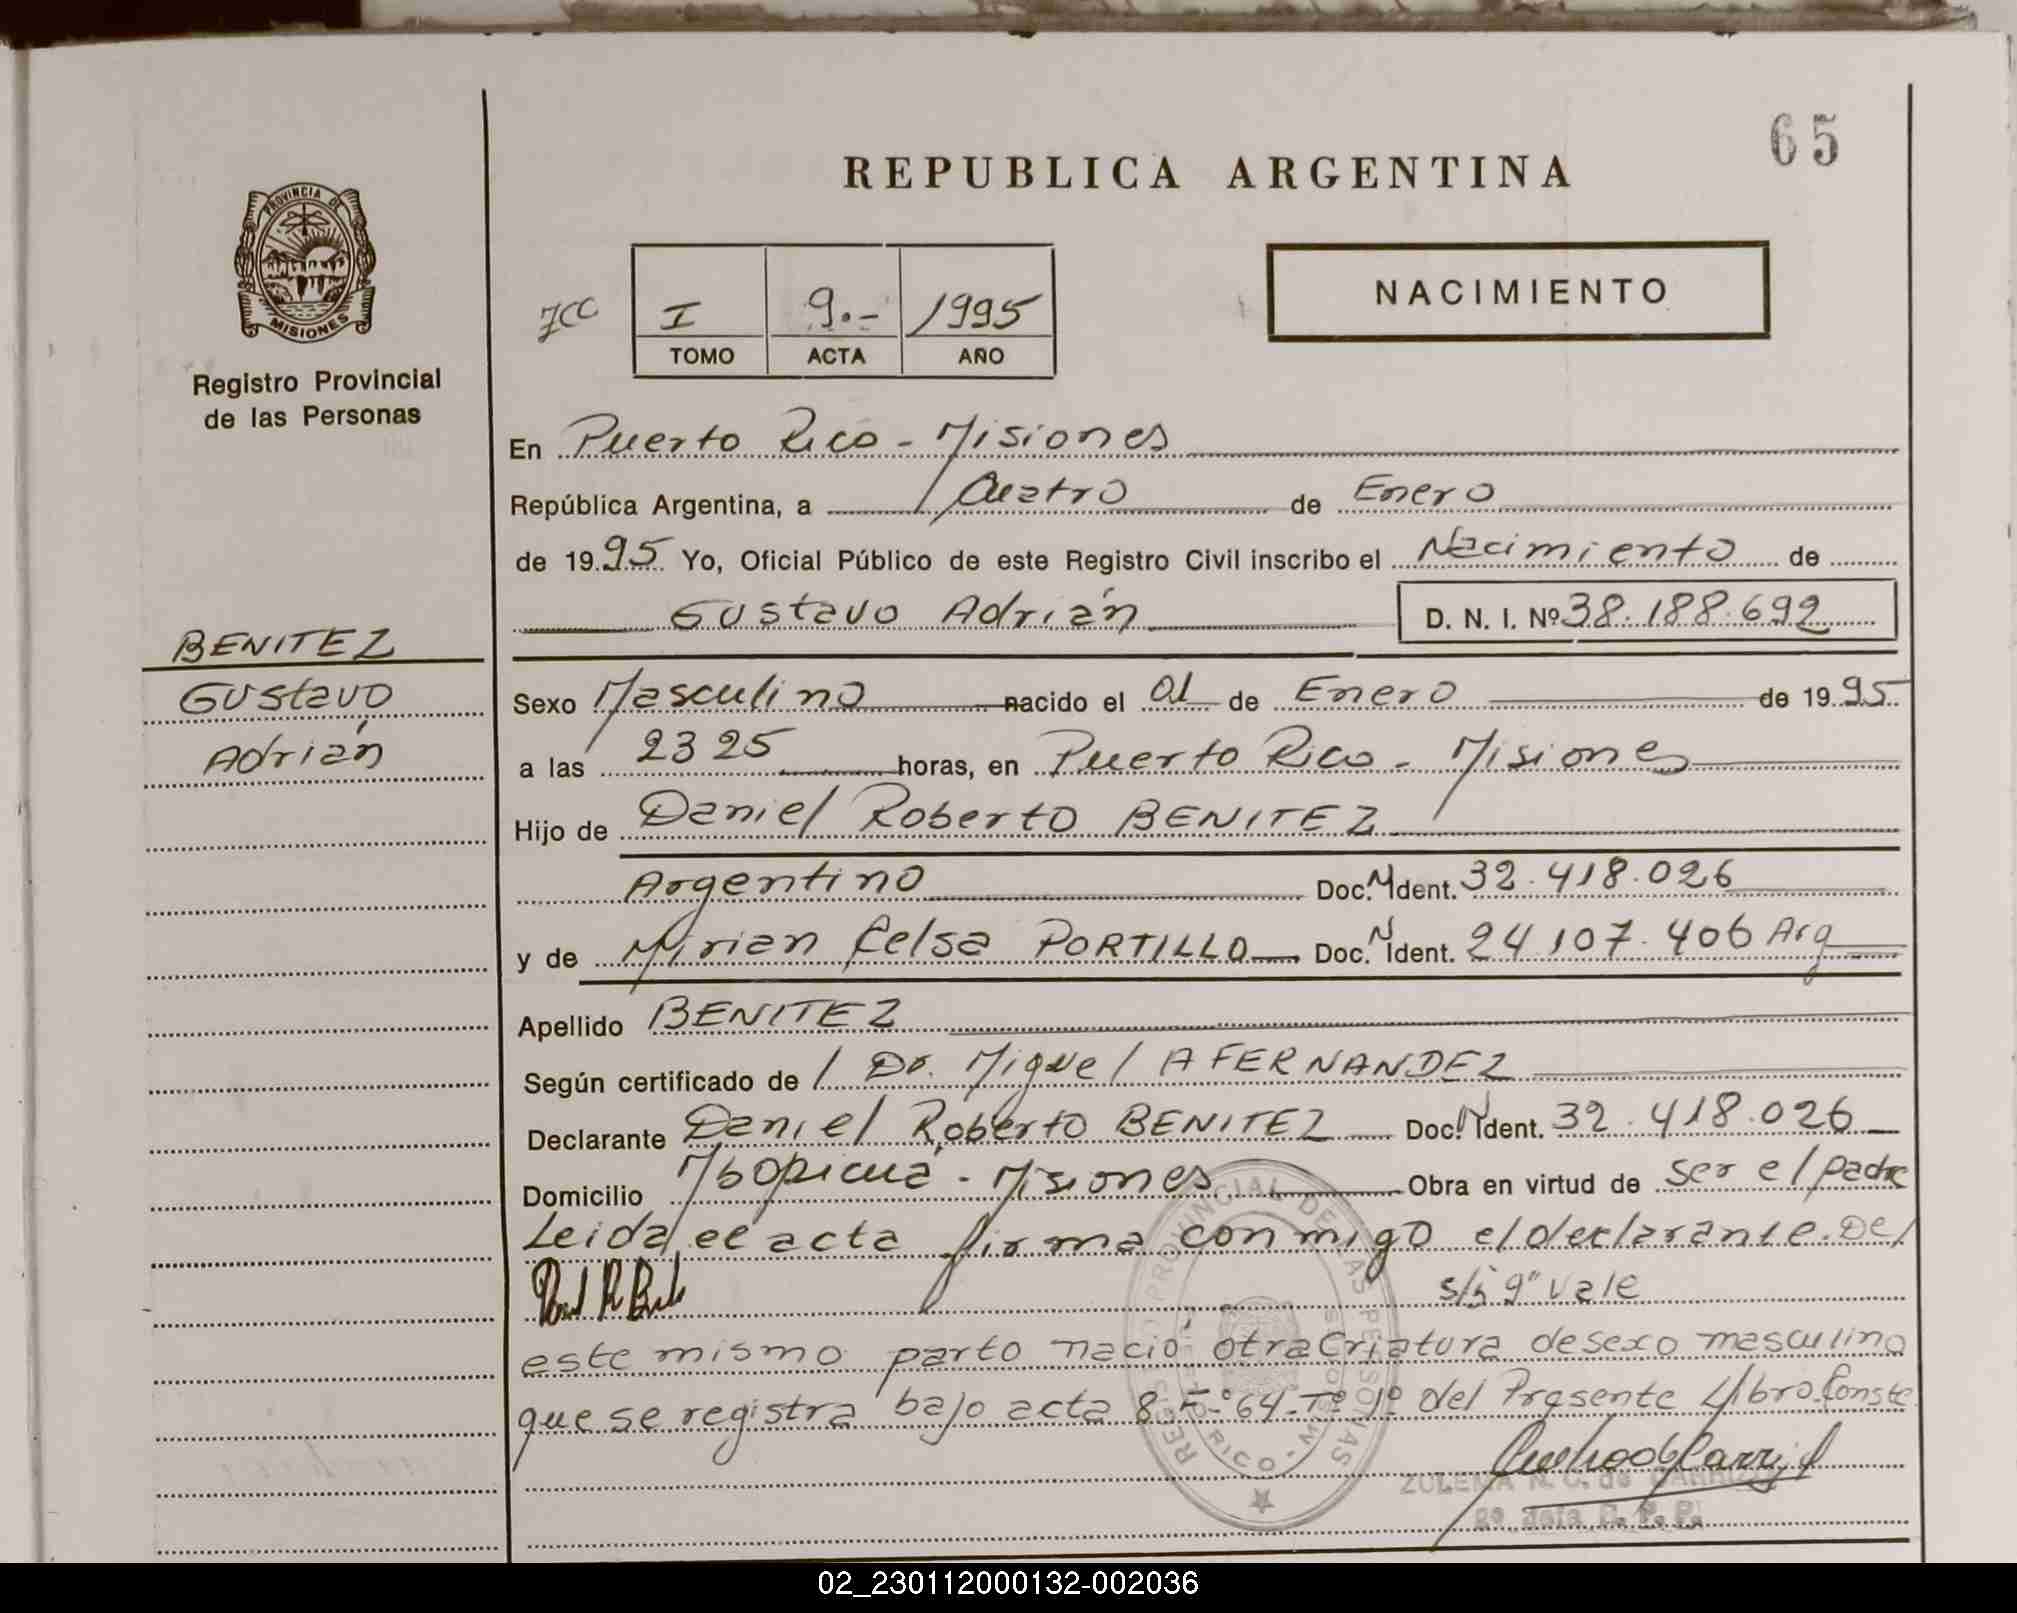 65
REPUBLICA ARGENTINA
PROVINCIA DE
MISIONES
Registro Provincial
de las Personas
I 9.- 1995
TOMO ACTA AÑO
NACIMIENTO
En Puerto Rico - Misiones
República Argentina, a Cuatro de Enero
de 1995 Yo, Oficial Público de este Registro Civil inscribo el Nacimiento de
Gustavo Adrián D. N. I. Nº 38.188.692
BENITEZ
Gustavo
Adrián
Sexo Masculino nacido el 01 de Enero de 1995
a las 23 25 horas, en Puerto Rico - Misiones
Hijo de Daniel Roberto BENITEZ
Argentino Doc. N Ident. 32.418.026
y de Mirian Celsa PORTILLO Doc. N Ident. 24.107.406 Arg
Apellido BENITEZ
Según certificado de / Dr. Miguel A FERNANDEZ
Declarante Daniel Roberto BENITEZ Doc. N Ident. 32.418.026
Domicilio Mbopicuá - Misiones Obra en virtud de ser el padre
Leida el acta firma conmigo el declarante. Del
9" vale
este mismo parto nació otra Criatura de sexo masculino
que se registra bajo acta 8 Fº 64 - Tº 1º del Presente Libro. Conste
REGISTRO PROVINCIAL DE LAS PERSONAS
PUERTO RICO - MISIONES
ZULEMA N. C. de CARRIZO
2º Jefa C. P. P.
02_230112000132-002036